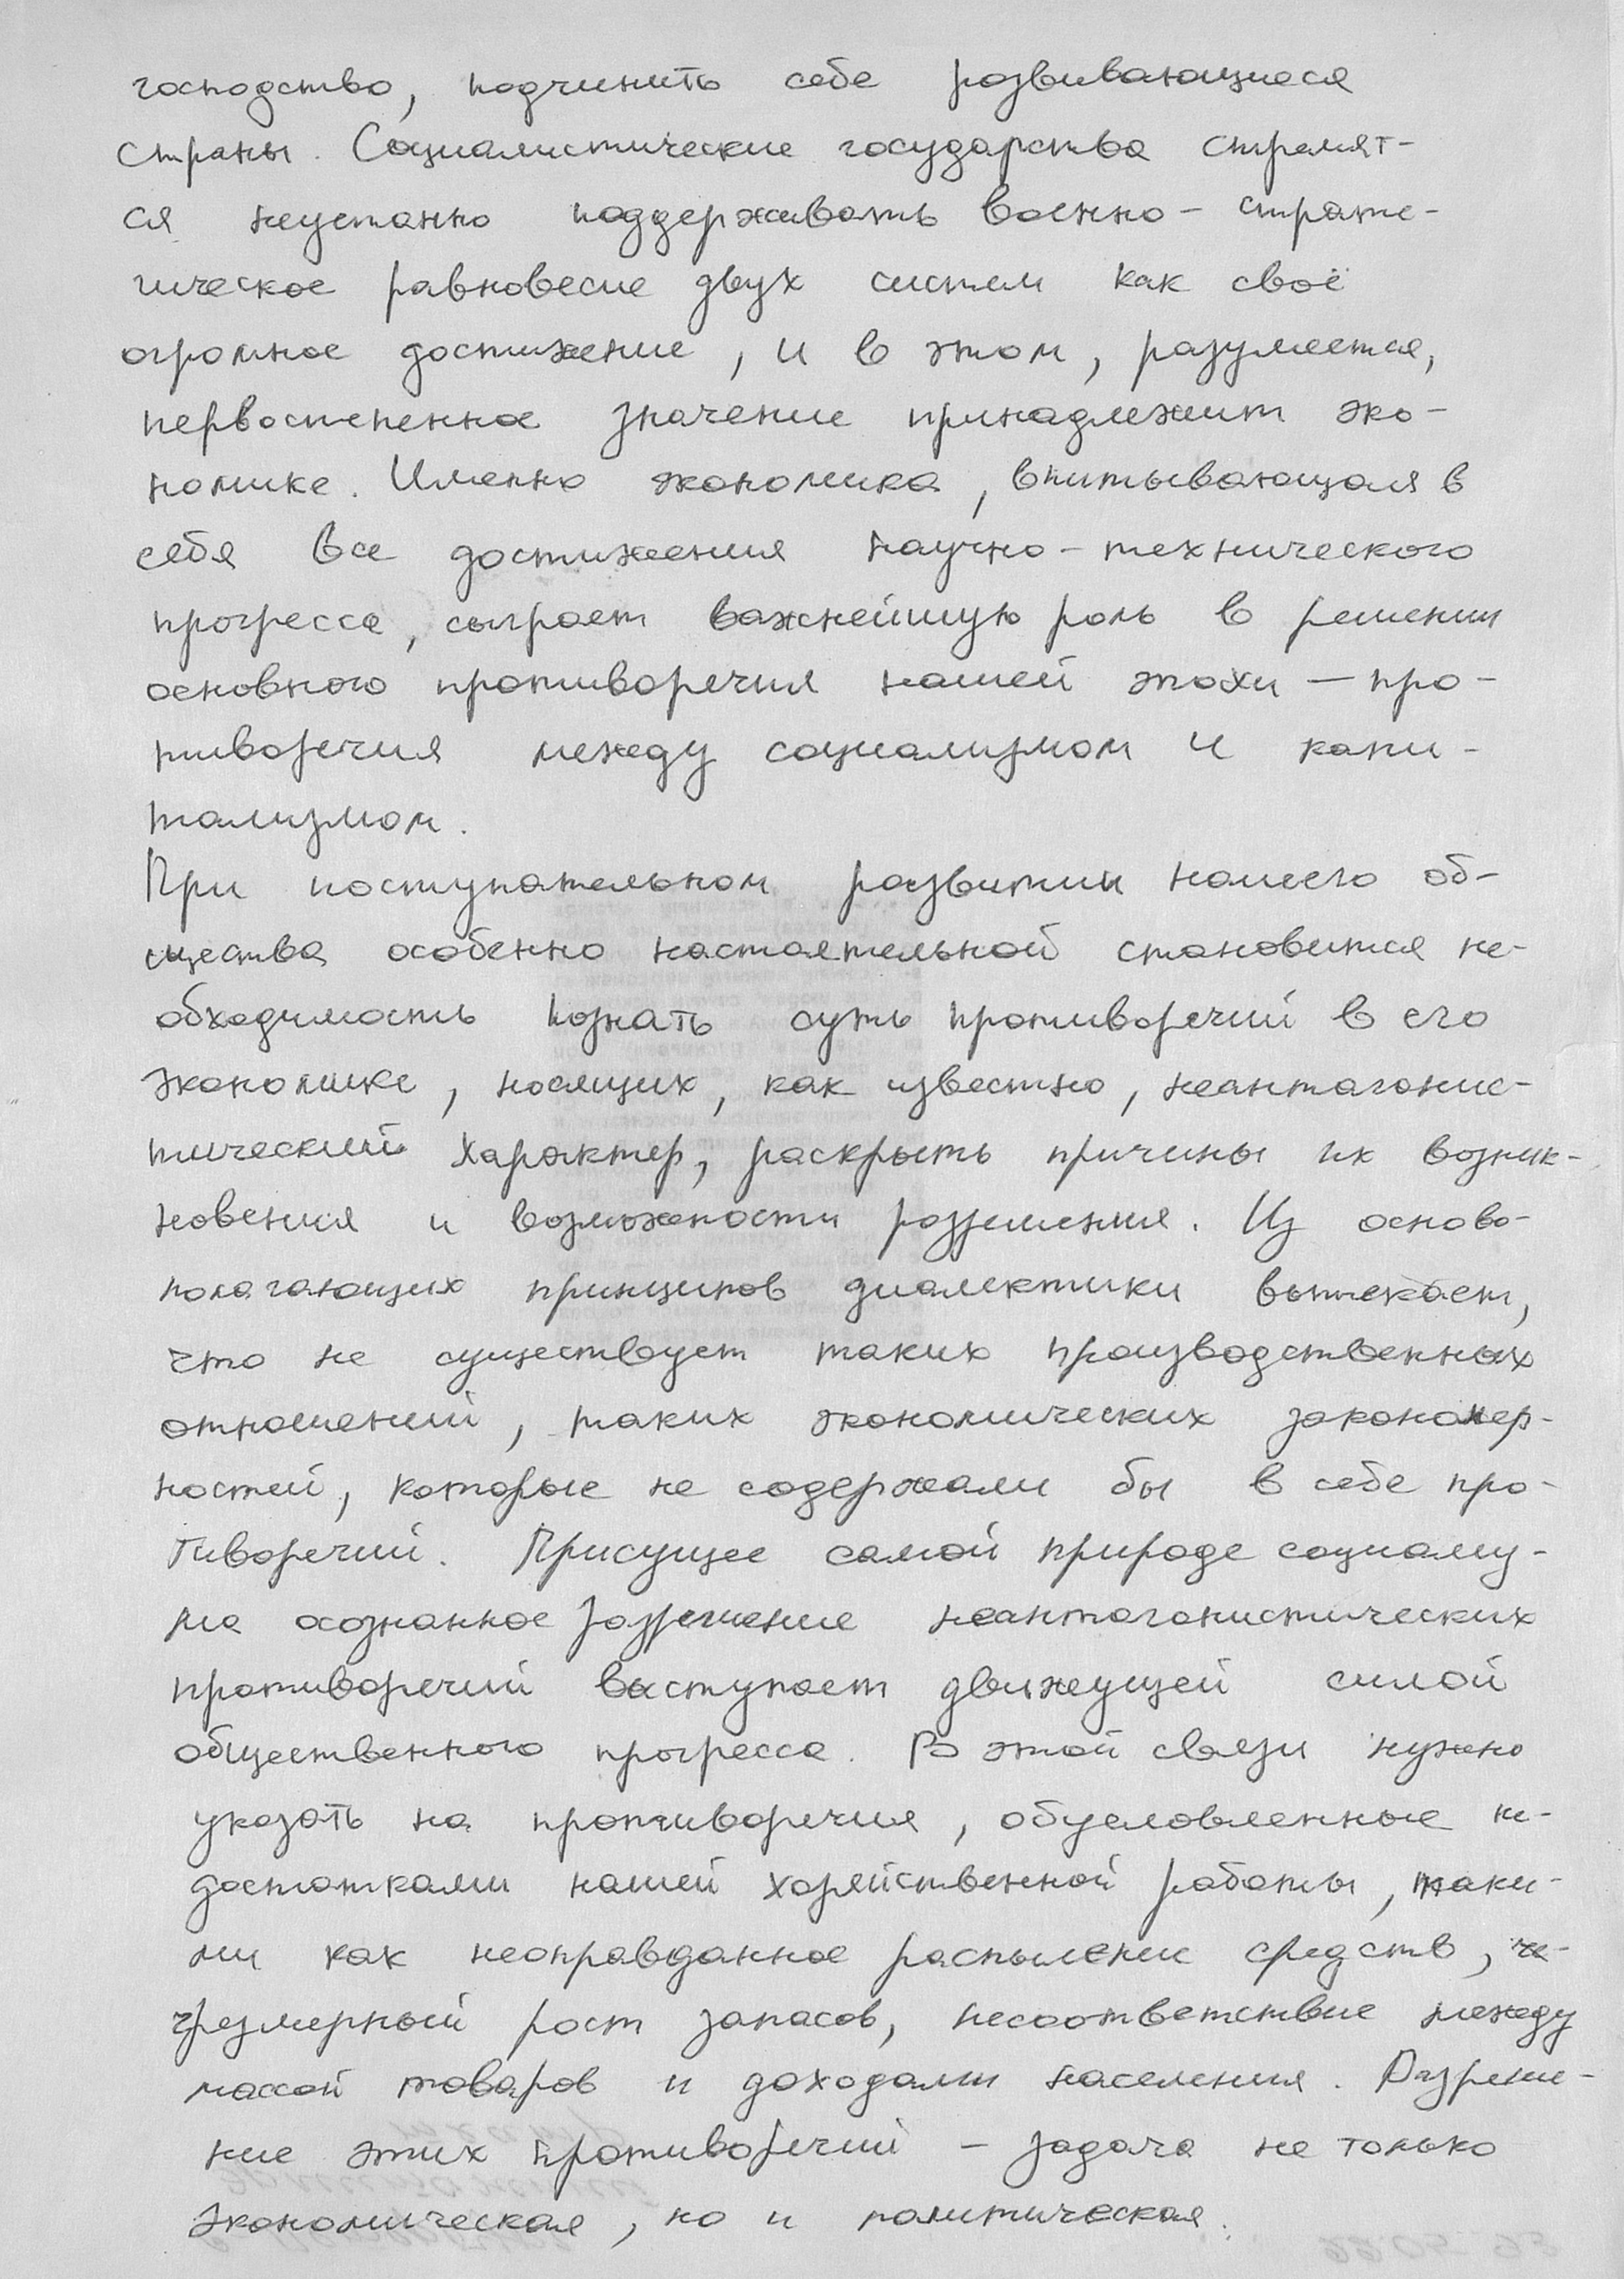 господство, подчинить себе развивающиеся
страны. Социалистические государства стремят-
ся неустанно поддерживать военно-страте-
гическое равновесие двух систем как своё
огромное достижение, и в этом, разумеется,
первостепенное значение принадлежит эко-
номике. Именно экономика, впитывающая в
себя все достижения научно-технического
прогресса, сыграет важнейшую роль в решении
основного противоречия нашей эпохи — про-
тиворечия между социализмом и капи-
тализмом.
При поступательном развитии нашего об-
щества особенно настоятельной становится не-
обходимость познать суть противоречий в его
экономике, носящих, как известно, неантагонис-
тический характер, раскрыть причины их возник-
новения и возможности разрешения. Из осново-
полагающих принципов диалектики вытекает,
что не существует таких производственных
отношений, таких экономических закономер-
ностей, которые не содержали бы в себе про-
тиворечий. Присущее самой природе социализ-
ма осознанное разрешение неантагонистических
противоречий выступает движущей силой
общественного прогресса. В этой связи нужно
указать на противоречия, обусловленные не-
достатками нашей хозяйственной работы, таки-
ми как неоправданное распыление средств, че-
чрезмерный рост запасов, несоответствие между
массой товаров и доходами населения. Разреше-
ние этих противоречий - задача не только
экономическая, но и политическая.